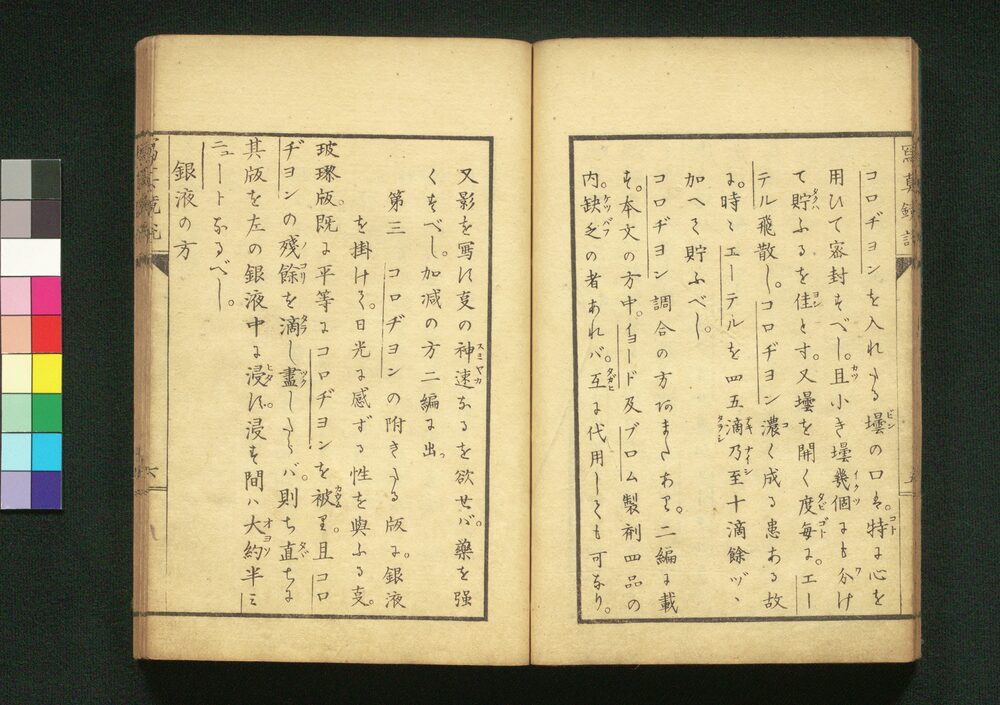 コロヂヨンを入れたる壜の口は。特に心を
用ひて密封すべし。且小き壜幾個にも分け
て貯ふるを佳とす。又壜を開く度毎に。エー
テル飛散し。コロヂヨン濃く成る患ある故
に。時々エーテルを四五滴乃至十滴餘ヅヽ
加へて貯ふべし。
コロヂヨン調合の方あまたあり。二編に載
す。本文の方中。ヨード及ブロム製剤四品の
内。缺乏の者あれバ。互に代用しても可なり。
又影を寫す叓の神速なるを欲せバ。藥を強
くすべし。加減の方二編に出つ
第三 コロヂヨンの附きたる版に。銀液
を掛けて。日光に感ずる性を與ふる叓。
玻璨版。既に平等にコロヂヨンを被り。且コロ
ヂヨンの殘餘を滴し盡したらバ。則ち直ちに
其版を左の銀液中に浸す。浸す間ハ大約半ミ
ニュートなるべし。
銀液の方